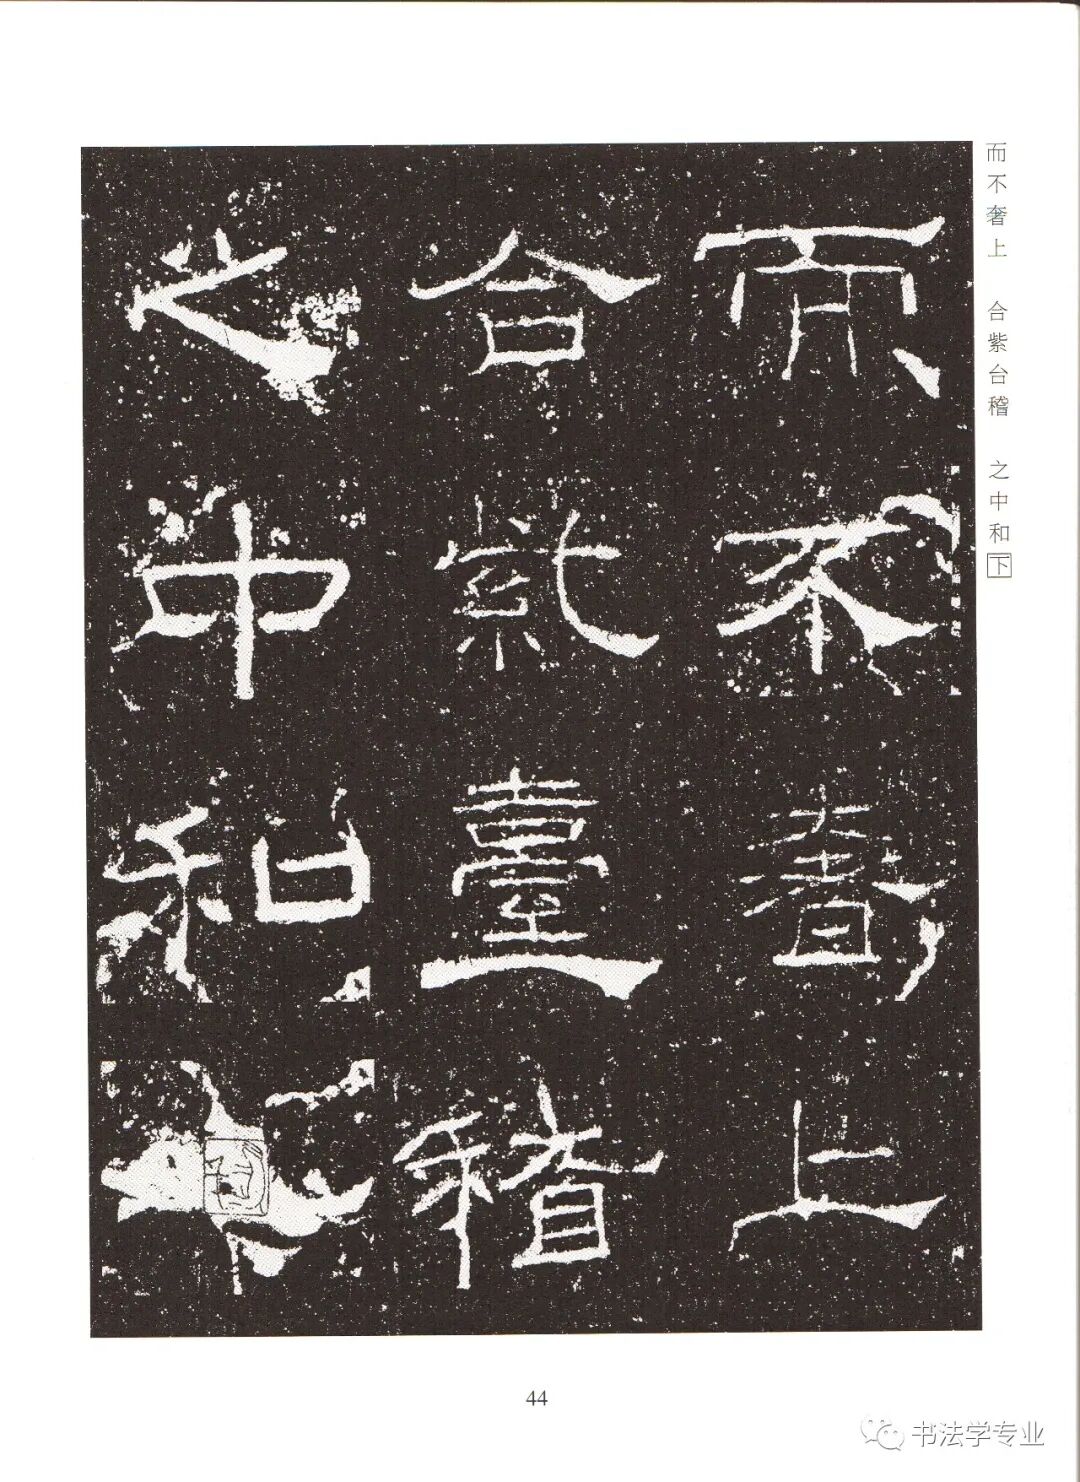 而不奢上
合紫臺稽
之中和
而不奢上 合紫台稽 之中和下
44
书法学专业